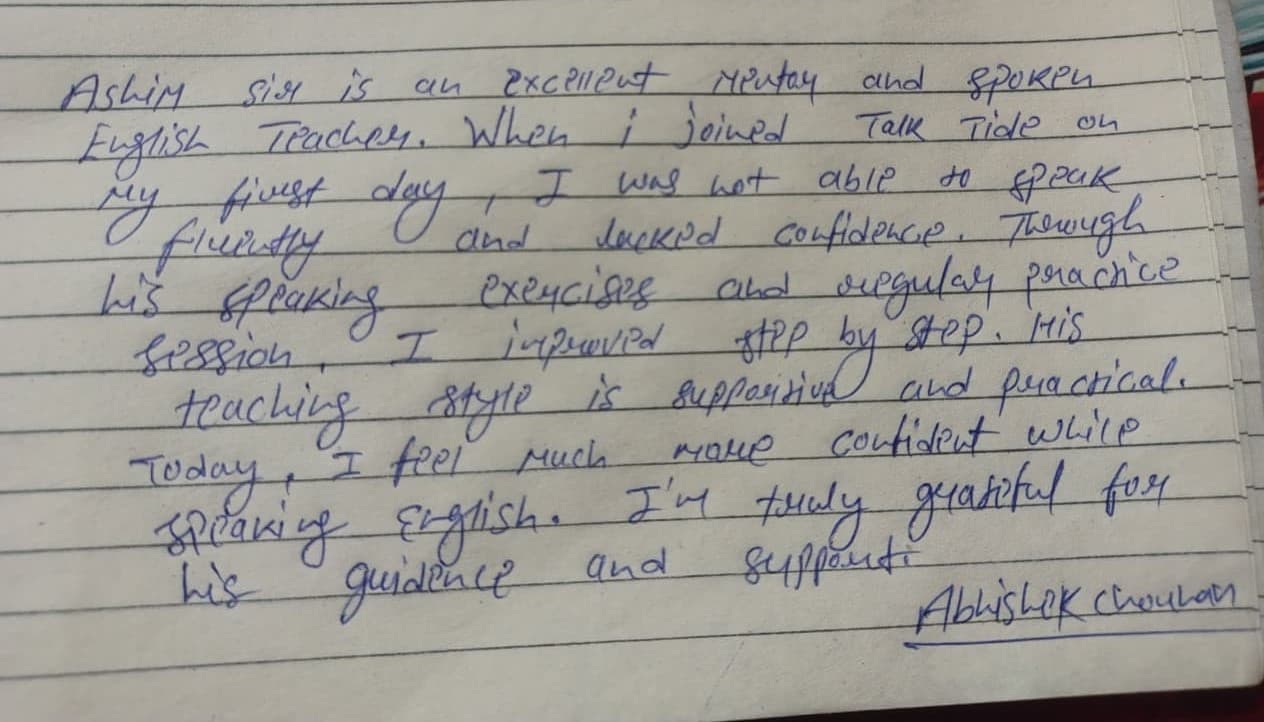 Ashim sir is an excellent mentor and spoken
English Teacher. When i joined Talk Tide on
my first day, I was not able to speak
fluently and lacked confidence. Through
his speaking exercises and regular practice
session, I improved step by step. His
teaching style is supportive and practical.
Today, I feel much more confident while
speaking English. I'm truly grateful for
his guidence and support.
Abhishek Chouhan